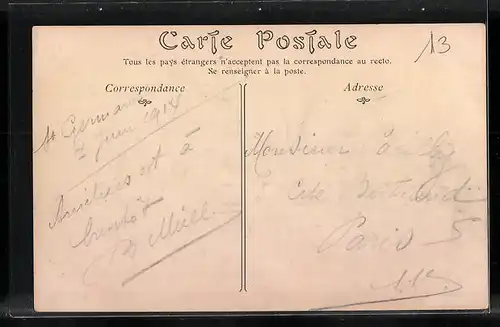 Carte Postale
13
Tous les pays étrangers n'acceptent pas la correspondance au recto.
Se renseigner à la poste.
Correspondance
St Germain
2 juin 1914
Amitiés et à
bientôt
Adresse
Monsieur
Paris